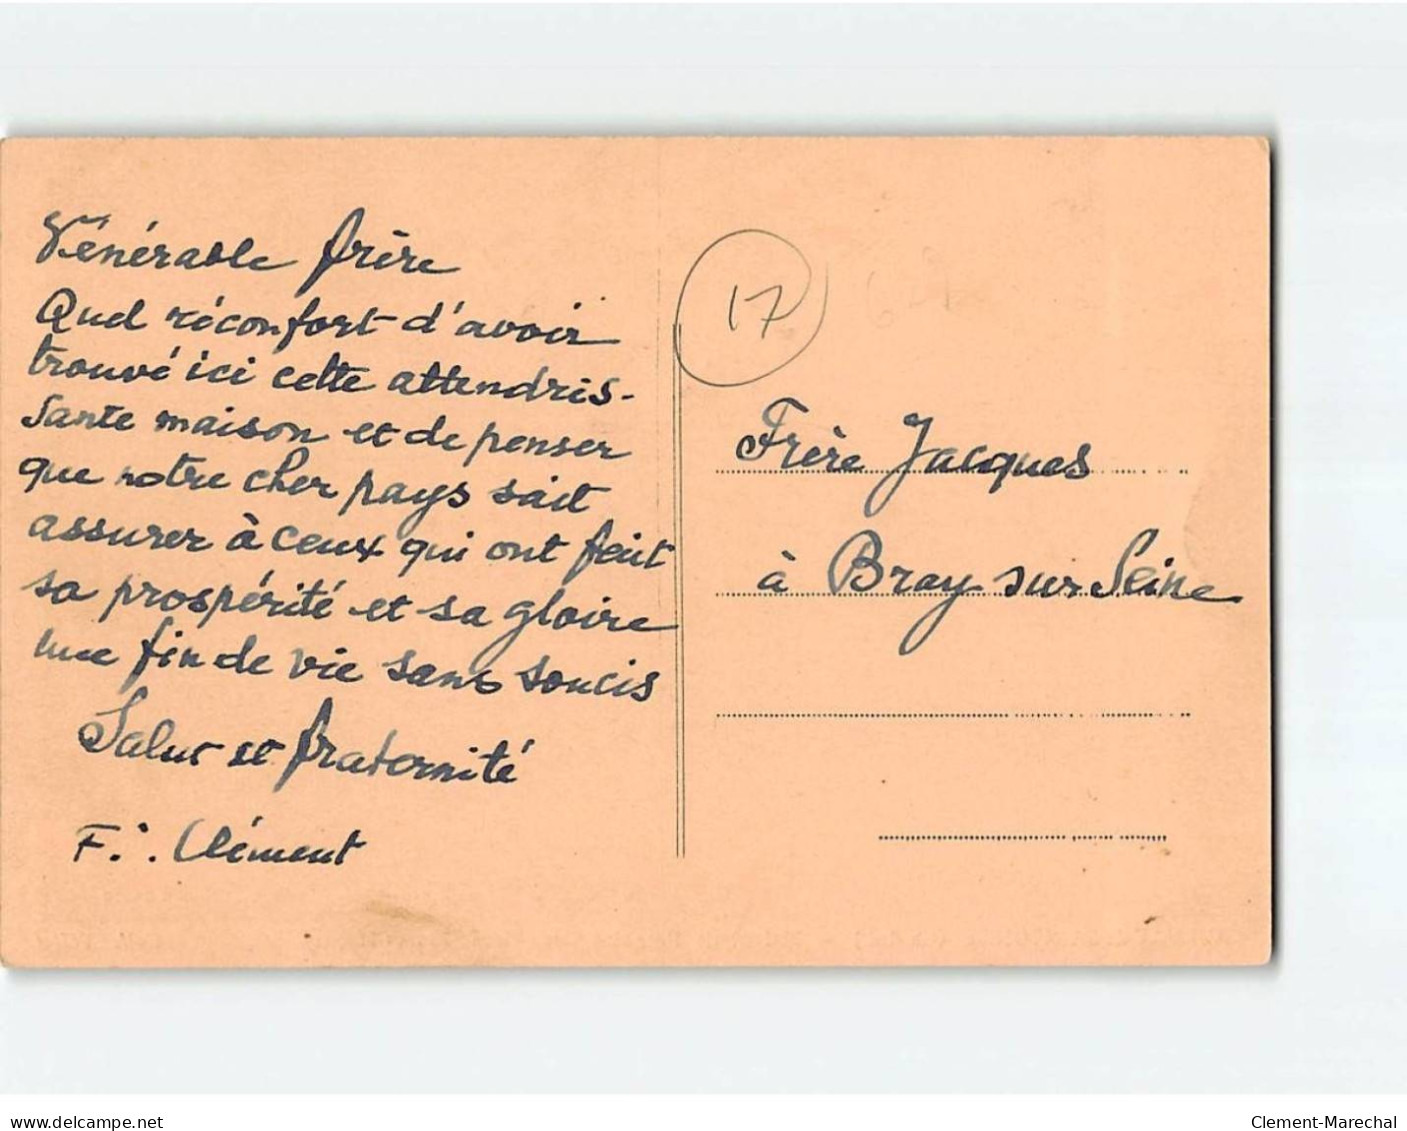 Vénérable frère
Quel réconfort d'avoir
trouvé ici cette attendris-
sante maison et de penser
que notre cher pays sait
assurer à ceux qui ont fait
sa prospérité et sa gloire
une fin de vie sans soucis
Salut et fraternité
F∴ Clément
17
Frère Jacques
à Bray sur Seine
delcampe.net
Clement-Marechal